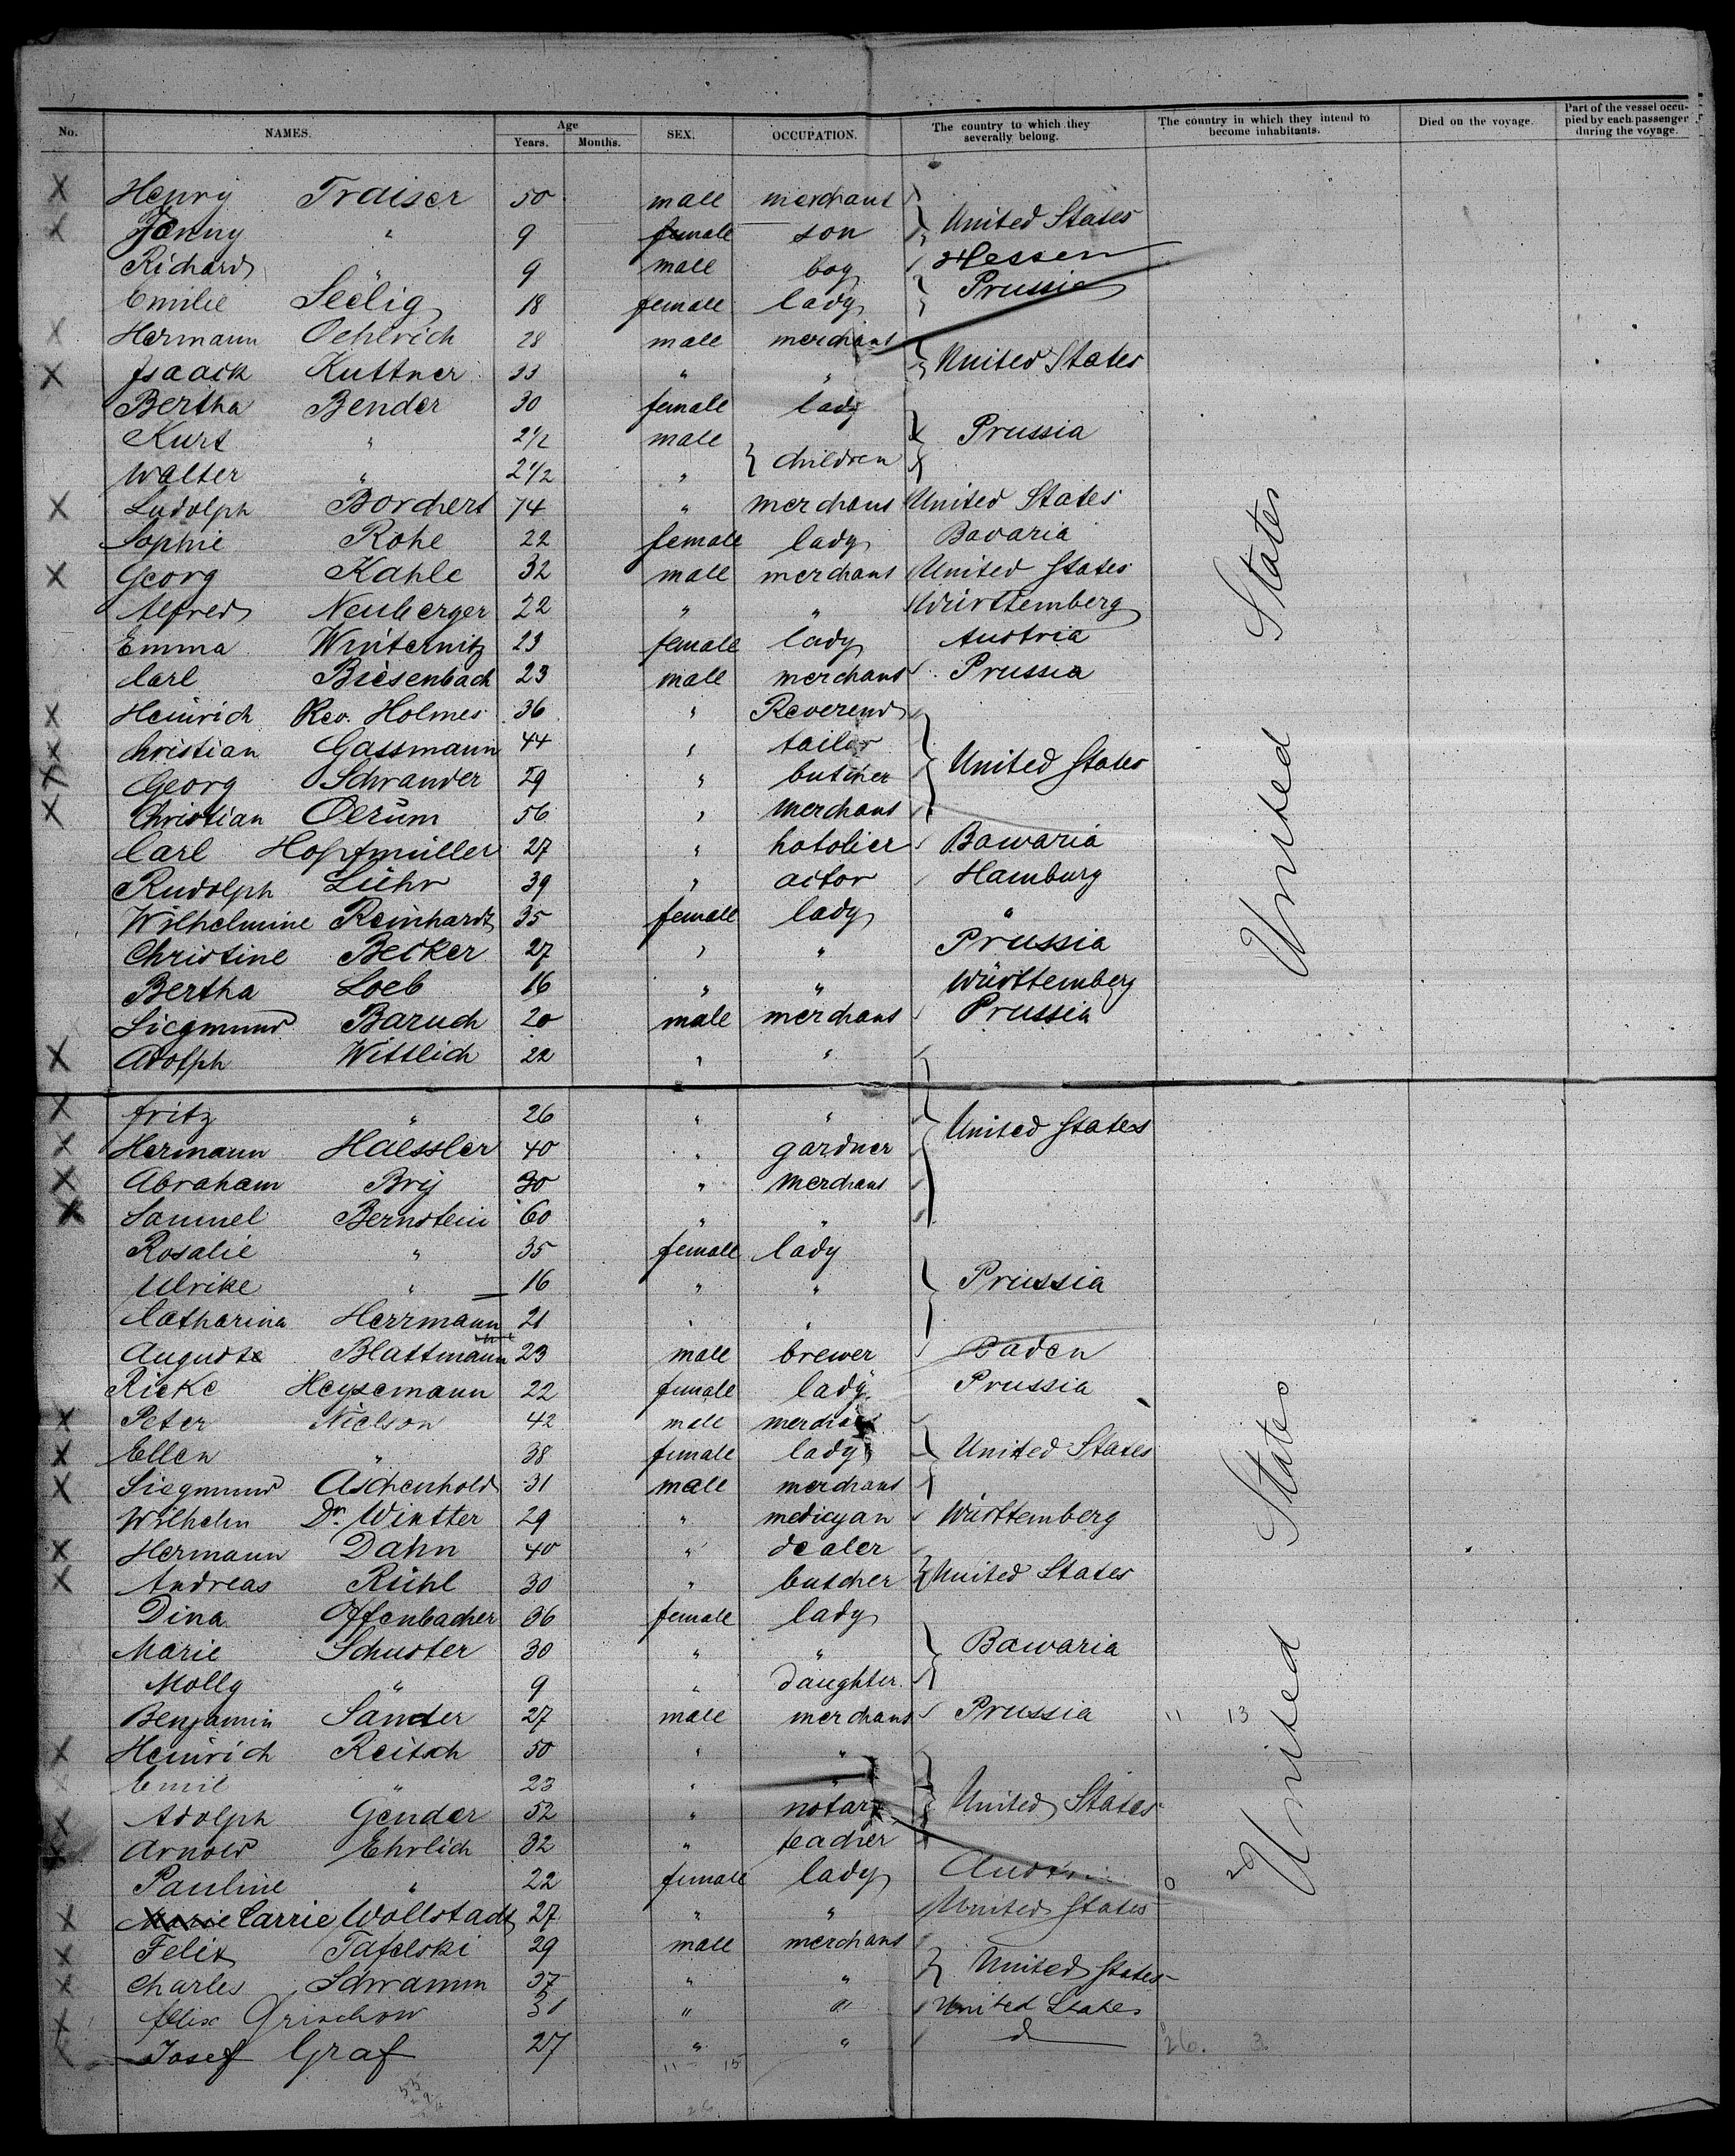 No. NAMES. Age Years. Months. SEX. OCCUPATION. The country to which they severally belong. The country in which they intend to become inhabitants. Died on the voyage. Part of the vessel occupied by each passenger during the voyage.
X Henry Traiser 50 male merchant
X Fanny " 9 female son } United States
Richard 9 male boy Hessen
Emilie Seelig 18 female lady } Prussia
X Hermann Oehlrich 28 male merchant
X Isaack Kuttner 33 " " } United States
Bertha Bender 30 female lady
Kurt " 2 1/2 male } Prussia
Walter " 2 1/2 " } children
X Ludolph Borchert 74 " merchant United States
Sophie Rohe 22 female lady Bavaria
X Georg Kahle 32 male merchant United States
Alfred Neuberger 22 " " Württemberg
Emma Winternitz 23 female lady Austria
Carl Biesenbach 23 male merchant Prussia
X Heinrich Rev. Holmes 36 " Reverend
X Christian Gassmann 44 " tailor } United States
X Georg Schrander 29 " butcher
X Christian Oerum 56 " merchant
Carl Hopfmüller 27 " hotolier Bawaria
Rudolph Lühr 39 " actor Hamburg
Wilhelmine Reinhardt 35 female lady "
Christine Becker 27 " " Prussia
Bertha Loeb 16 " " Württemberg
Siegmund Baruch 20 male merchant Prussia
X Adolph Wittlich 22 " "
X Fritz " 26 " " } United States
X Hermann Haessler 40 " gardner
X Abraham Brij 30 " merchant
X Samuel Bernstein 60 " "
Rosalie " 35 female lady
Ulrike " 16 " " } Prussia
Catharina Herrmann 21 " "
August Blattmann 23 male brewer Baden
Rieke Heysemann 22 female lady Prussia
X Peter Nielson 42 male merchant
X Ellen " 38 female lady } United States
X Siegmund Aschenhold 31 male merchant
Wilhelm Dr. Wintter 29 " medicyan Württemberg
X Hermann Dahn 40 " dealer
X Andreas Rühl 30 " butcher } United States
Dina Offenbacher 36 female lady
Marie Schuster 30 " " } Bawaria
Molly " 9 " daughter
Benjamin Sander 27 male merchant Prussia 11 13
X Heinrich Reitsch 50 " "
X Emil " 23 " "
X Adolph Gender 52 " notary } United States
X Arnold Ehrlich 32 " teacher
Pauline " 22 female lady 0 20
X Marie Carrie Wollstadt 27 " " United States
X Felix Tafelski 29 male merchant
X Charles Schramm 37 " " } United States
X Felix Grischow 31 " " United States
Josef Graf 27 " " d
26. 3
11 15
26
United States
United States